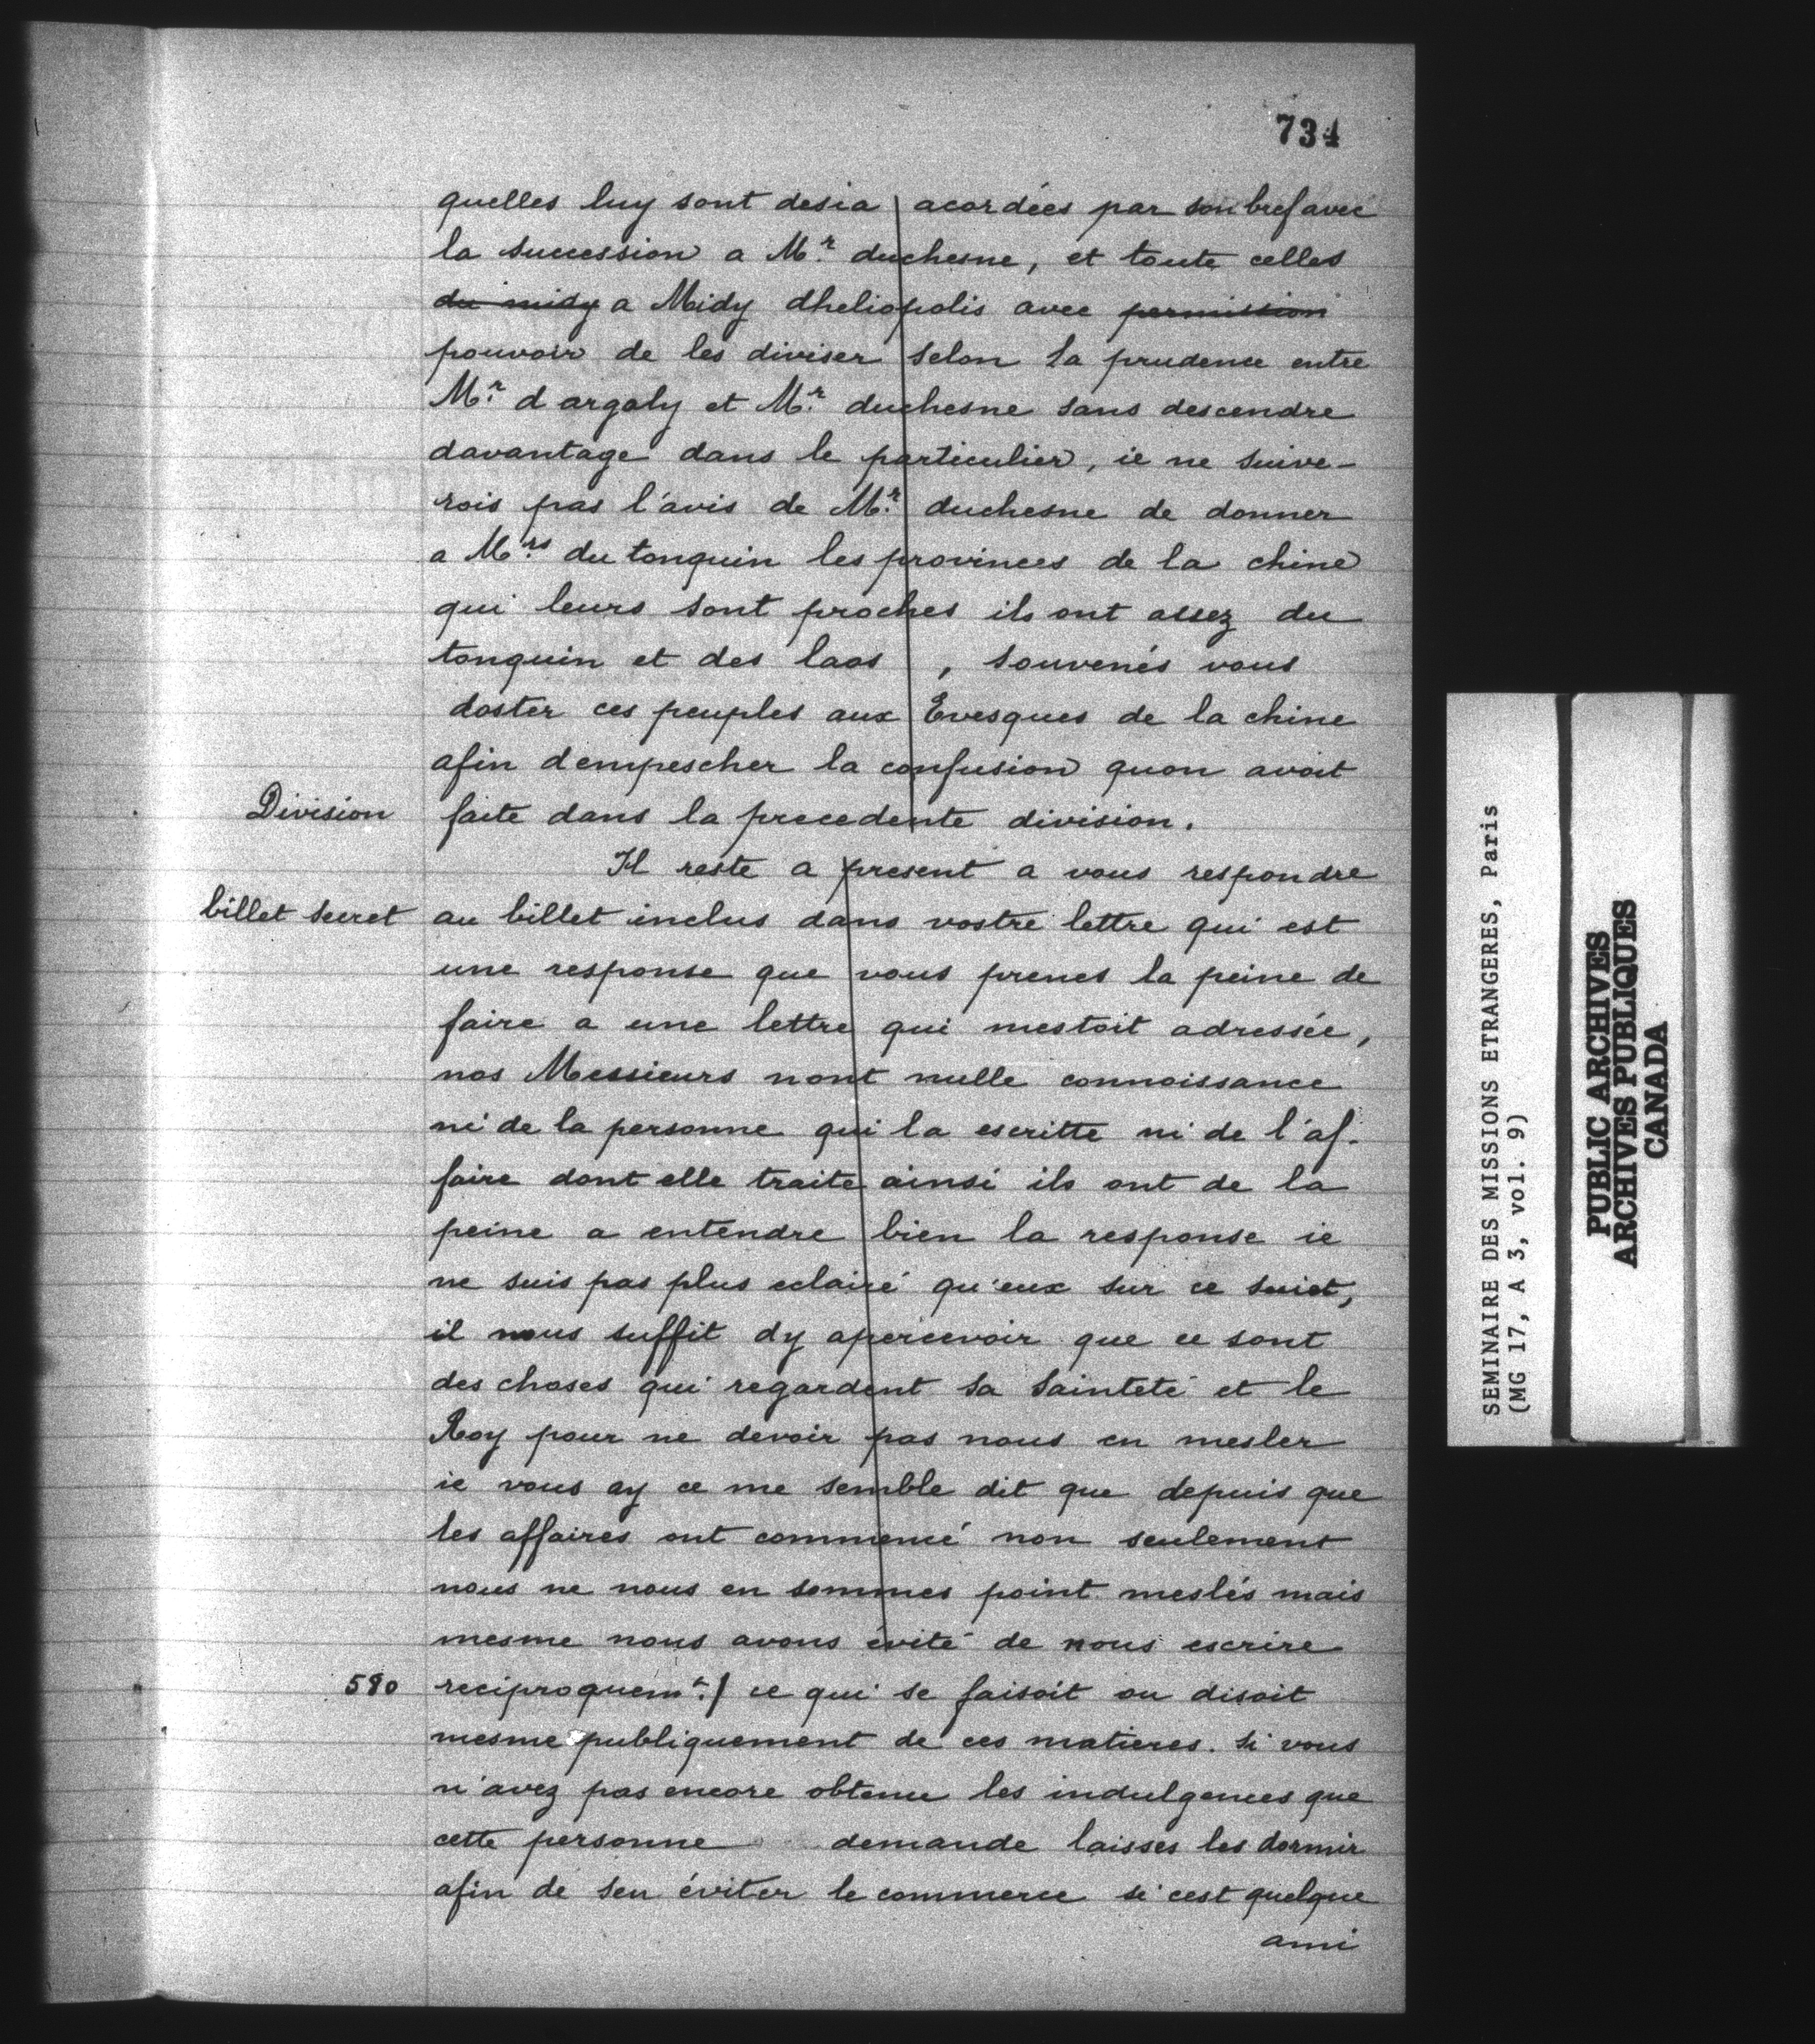 734
quelles luy sont desia acordées par son bref avec
la succession a Mr. duchesne, et toute celles
du midy a Midy dheliopolis avec permission
pouvoir de les diviser selon sa prudence entre
Mr. d argoly et Mr. duchesne sans descendre
davantage dans le particulier, ie ne suive-
rois pas l'avis de Mr. duchesne de donner
a Mrs. du tonquin les provinces de la chine
qui leurs sont proches ils ont assez du
tonquin et des laos , souvenés vous
doster ces peuples aux Evesques de la chine
afin dempescher la confusion quon avoit
Division faite dans la precedente division.
Il reste a present a vous respondre
billet secret au billet inclus dans vostre lettre qui est
une response que vous prenes la peine de
faire a une lettre qui mestoit adressée,
nos Messieurs nont nulle connoissance
ni de la personne qui la escritte ni de l'af-
faire dont elle traite ainsi ils ont de la
peine a entendre bien la response ie
ne suis pas plus eclairé qu'eux sur ce suiet,
il nous suffit dy apercevoir que ce sont
des choses qui regardent sa Sainteté et le
Roy pour ne devoir pas nous en mesler
ie vous ay ce me semble dit que depuis que
les affaires ont commencé non seulement
nous ne nous en sommes point meslés mais
mesme nous avons évité de nous escrire
580 reciproquemt./ ce qui se faisoit ou disoit
mesme publiquement de ces matieres. Si vous
n'avez pas encore obtenu les indulgences que
cette personne demande laisses les dormir
afin de sen éviter le commerce si cest quelque
ami
SEMINAIRE DES MISSIONS ETRANGERES, Paris
(MG 17, A 3, vol. 9)
PUBLIC ARCHIVES
ARCHIVES PUBLIQUES
CANADA